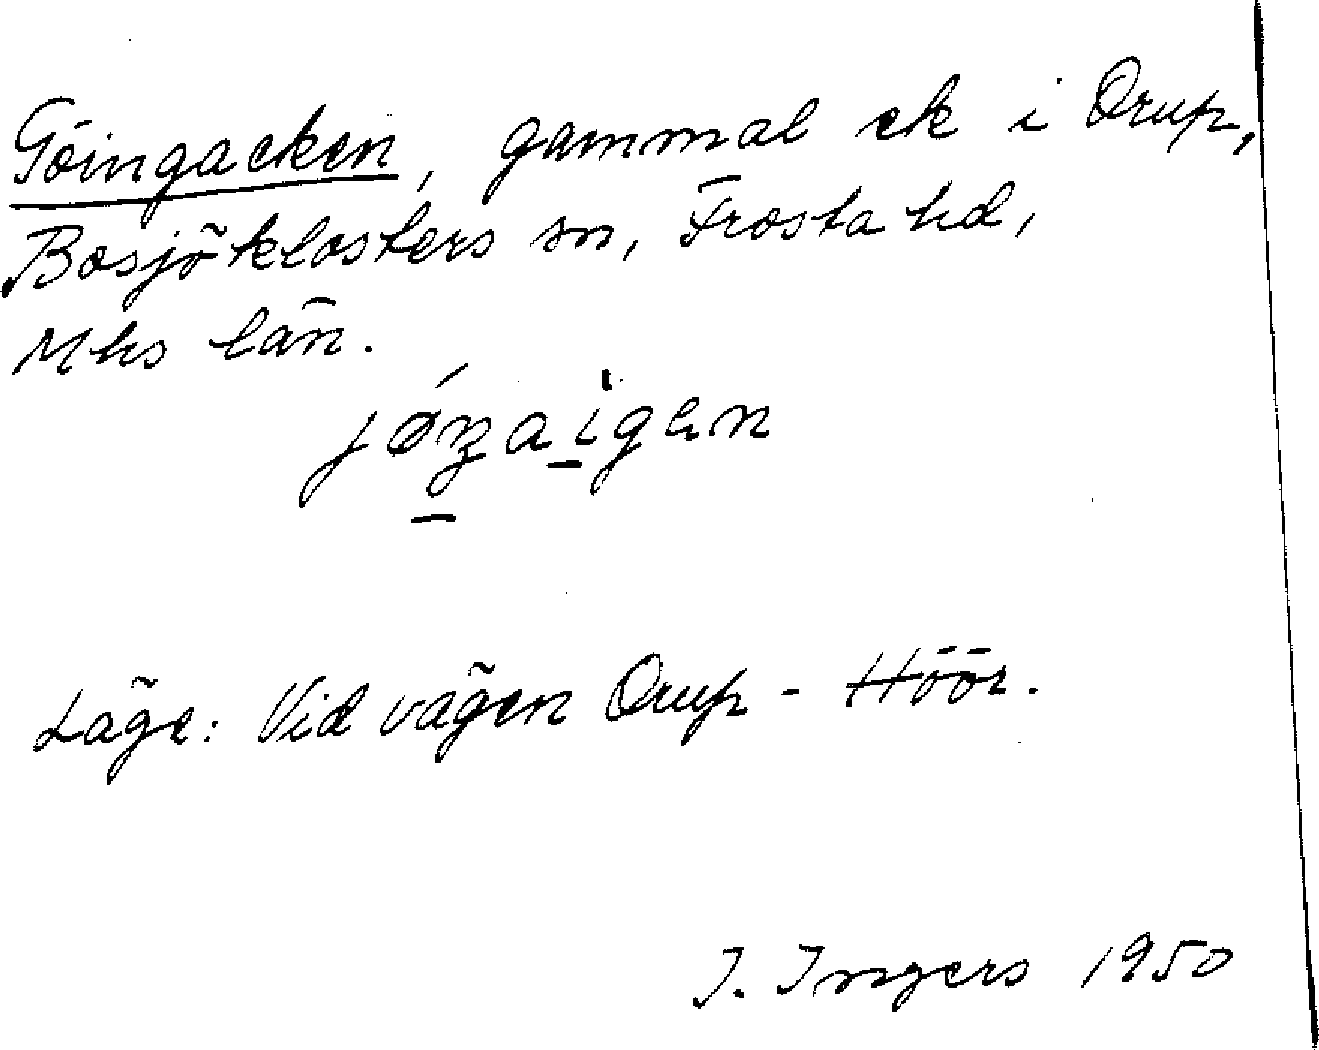 Göingaeken, gammal ek i Orup,
Bosjöklosters sn, Frosta hd,
Mhs län.
Läge: Vid vägen Orup - Höör.
I. Ingers 1950